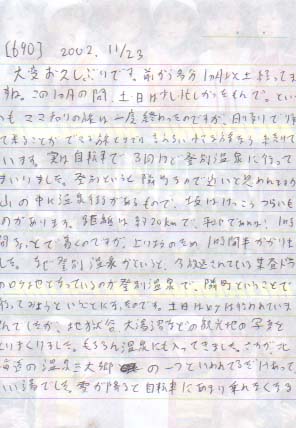 [690] 2002, 11/23
大変お久しぶりです。前から多分1ヶ月以上経ってま
すね。この1ヶ月の間、土日は少し忙しかったもんで。とい
のも ママチャリの旅は一度終わったのですが、日帰りで
て来ることができる旅
います。実は自転車で3回ほど登別温泉に行って
まいりました。登別というと隣町なので近いと思われますが
山の中に温泉街があるもので、坂はけっこうつらいも
のがあります。距離は約20kmで、平地であれば、1時
間ちょっとで着くのですが、上りのため1時間半かかりま
した。なぜ登別温泉かというと、今放送されている
のロケ地となっているのが登別温泉で、隣町ということで
行ってみようということになったのです。土日はロケは行われていま
せんでしたが、地獄谷、大湯沼などの観光地の写真を
とりまくりました。もちろん温泉にも入ってきました。さすが北
海道の温泉三大郷の一つといわれてるだけあって
いい湯でした。雪が降ると自転車にあまり乗れなくなる